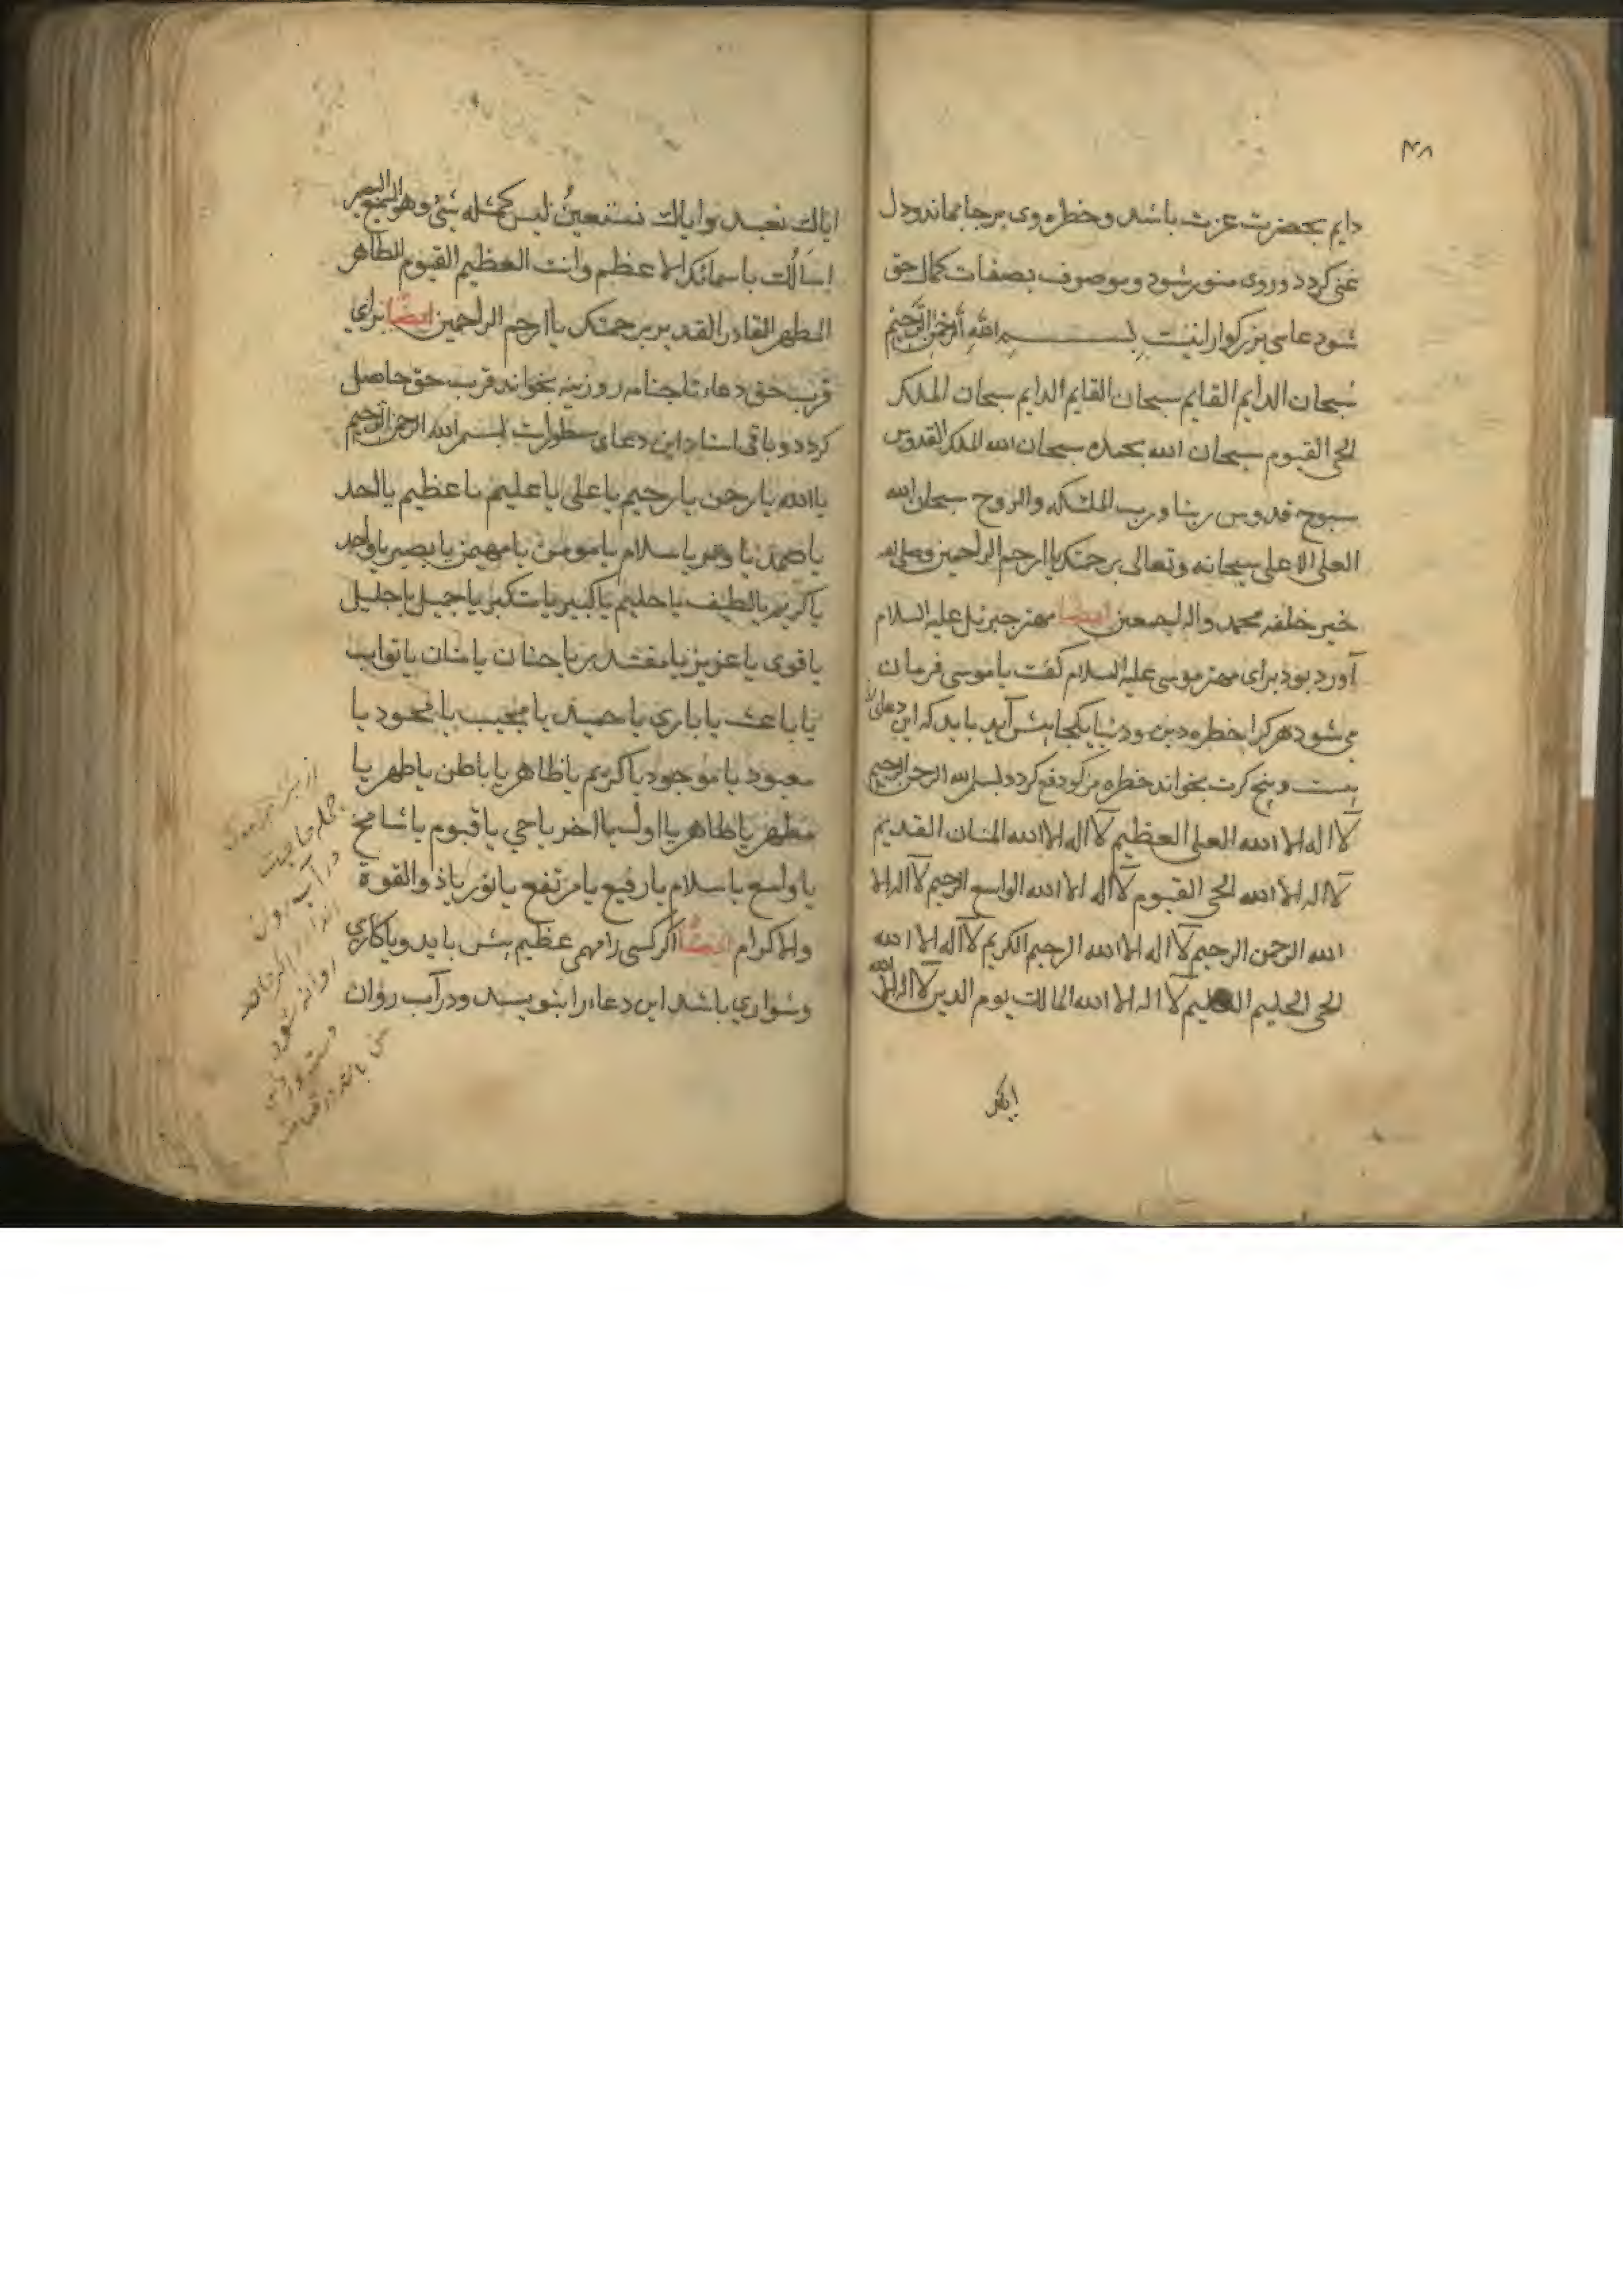 ۴۸
دایم بحضرت عزت باشد و خطره وی برجا نماند و دل
غنی کردد و روی منور شود و موصوف بصفات کمال حق
شود دعاء بزرکوار اینست بسم الله الرحمن الرحیم
سبحان الدایم القایم سبحان القایم الدایم سبحان الملک
الحی القیوم سبحان الله بحمده سبحان الله الملک القدوس
سبوح قدوس ربنا ورب الملئکه والروح سبحان الله
العلی الاعلی سبحانه وتعالی برحمتک یا ارحم الراحمین وصلی الله
خیر خلقه محمد واله اجمعین ایضا مهتر جبرئیل علیه السلام
آورد بود برای مهتر موسی علیه السلام کفت یا موسی فرمان
می شود هر کرا خطره دین و دنیا یکجا پیش آید باید که این دعای
بیست و پنج کرت بخواند خطره مذکور دفع کردد بسم الله الرحمن الرحیم
لا اله الا الله العلی العظیم لا اله الا الله المنان القدیم
لا اله الا الله الحی القیوم لا اله الا الله الواسع الرحیم لا اله الا
الله الرحمن الرحیم لا اله الا الله الرحیم الکریم لا اله الا الله
الحی الحلیم العلیم لا اله الا الله المالک یوم الدین لا اله الا الله
ایاک
ایاک نعبد وایاک نستعین لیس کمثله شیٔ وهو السمیع البصیر
اسالک باسمائک الاعظم وانت العظیم القیوم الطاهر
المطهر القادر القدیر برحمتک یا ارحم الراحمین ایضا برای
قرب حق دعاء تاجنامه روزینه بخواند قرب حق حاصل
کردد و باقی اسناد این دعای سطورات بسم الله الرحمن الرحیم
یا الله یا رحمن یا رحیم یا علی یا علیم یا عظیم یا احد
یا صمد یا وتر یا سلام یا مومن یا مهیمن یا بصیر یا واحد
یا کریم یا لطیف یا حلیم یا کبیر یا متکبر یا جمیل یا جلیل
یا قوی یا عزیز یا مقتدر یا حنان یا منان یا تواب
یا باعث یا باری یا حمید یا مجیب یا محمود یا
معبود یا موجود یا کریم یا ظاهر یا باطن یا طهر یا
مطهر یا طاهر یا اول یا اخر یا حی یا قیوم یا شامخ
یا واسع یا سلام یا رفیع یا مرتفع یا نور یا ذوالقوة
والاکرام ایضا اکر کسی را مهمی عظیم پیش باید و یا کاری
دشواری باشد این دعاء را بنویسد و در آب روان
جمله حاجات
در آب روان
روانه شود